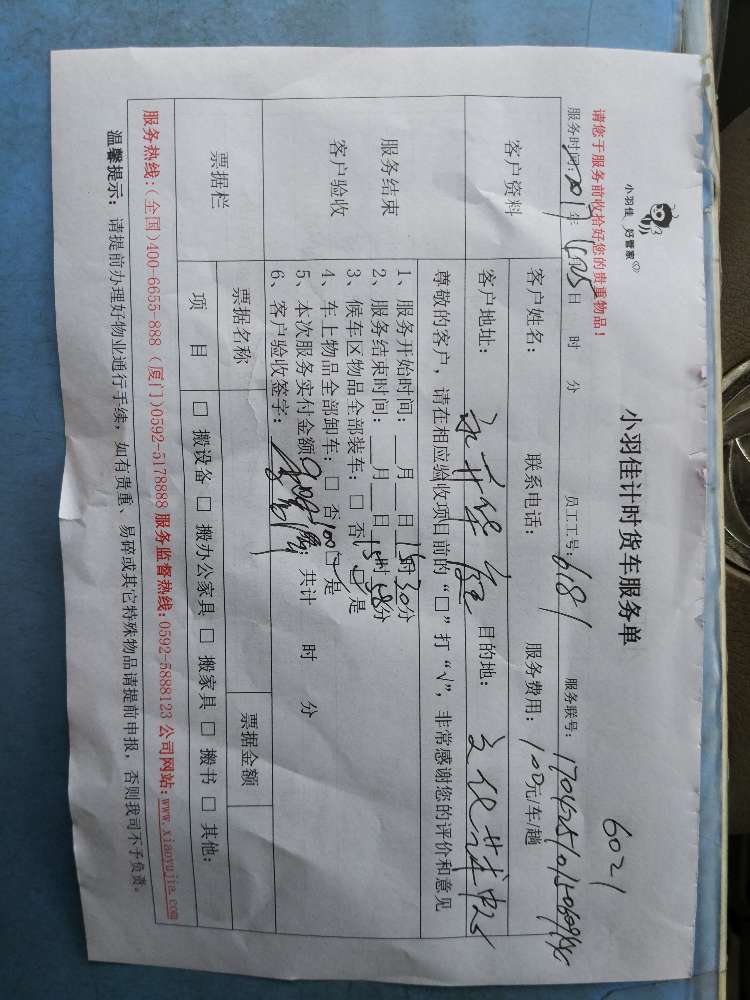 小羽佳 好管家
小羽佳计时货车服务单
6021
请您于服务前收拾好您的贵重物品！
服务时间: 2017年 日 时 分 员工工号: 6181 服务联号:
客户资料 客户姓名: 联系电话: 服务费用: 100元/车/趟
客户地址: 目的地: 文化艺术中心
尊敬的客户，请在相应验收项目前的“□”打“√”，非常感谢您的评价和意见
服务结束
客户验收
1、服务开始时间: __月__日15时30分
2、服务结束时间: __月__日 时 分
3、候车区物品全部装车: □ 否 □ 是
4、车上物品全部卸车: □ 否 □ 是
5、本次服务实付金额 100 共计 时 分
6、客户验收签字:
票据栏 票据名称 票据金额
项 目 □ 搬设备 □ 搬办公家具 □ 搬家具 □ 搬书 □ 其他:
服务热线:(全国)400-6655-888 (厦门)0592-5178888 服务监督热线:0592-5888123 公司网站:www.xiaoyujia.com
温馨提示: 请提前办理好物业通行手续，如有贵重、易碎或其它特殊物品请提前申报，否则我司不予负责。